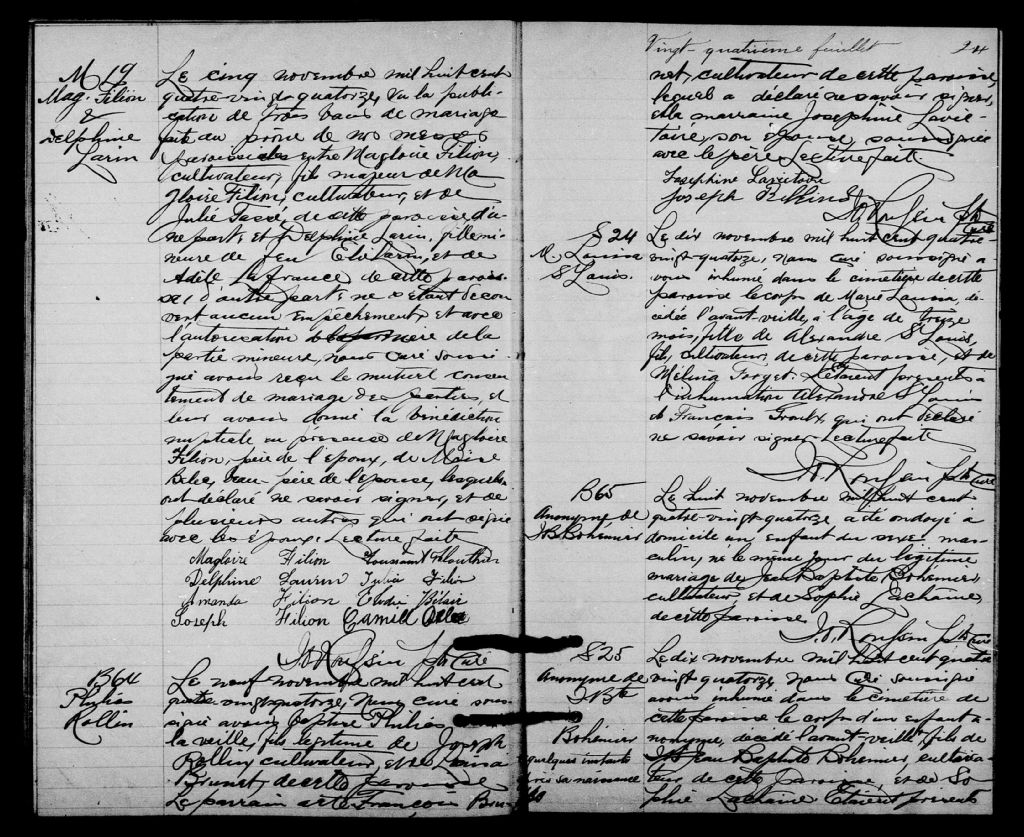 M 19
Mag. Filion
&
Delphine
Larin
Le cinq novembre mil huit cent
quatre vingt quatorze, vu la publi-
cation de trois bans de mariage
faite au prône de nos messes
paroissiales entre Magloire Filion,
cultivateur, fils majeur de Ma
gloire Filion, cultivateur, et de
Julie Gassé, de cette paroisse d'u-
ne part; et Delphine Larin, fille mi-
neure de feu Eli Larin, et de
Adèle Lafrance de cette parois-
se, d'autre part; ne s'étant décou
vert aucun empêchement, et avec
l'autorisation de la
partie mineure, nous curé soussi-
gné avons reçu le mutuel consen
tement de mariage des parties, et
leur avons donné la bénédiction
nuptiale en présence de Magloire
Filion, père de l'époux, de Moïse
Belec, beau-père de l'épouse, lesquels
ont déclaré ne savoir signer, et de
plusieurs autres qui ont signé
avec les époux. Lecture faite
Magloire Filion Toussaint
Delphine Laurin Julie Filion
Amanda Filion Elodie Bélair
Joseph Filion Camill
Ptre Curé
B64
Philias
Rollin
Le neuf novembre mil huit cent
quatre-vingt quatorze, Nous curé sous-
signé avons baptisé Philias
la veille, fils légitime de Joseph
Rollin, cultivateur, et de
Brunet, de cette paroisse
Le parrain a été François Bru-
Vingt-quatrième feuillet 24
net, cultivateur de cette paroisse,
lequel a déclaré ne savoir signer,
et la marraine Josephine Lavic-
toire, son épouse, soussignée
avec le père. Lecture faite.
Josephine Lavictoire
Joseph
Ptre
Curé
S 24
M. Louisa
St Louis.
Le dix novembre mil huit cent quatre-
vingt-quatorze, nous curé soussigné a-
vons inhumé dans le cimetière de cette
paroisse le corps de Marie Louisa, dé-
cédée l'avant-veille, à l'âge de treize
mois, fille de Alexandre St Louis,
fils, cultivateur, de cette paroisse, et de
Mélina Forget. Etaient présents à
l'inhumation Alexandre St Louis
et François Groulx, qui ont déclaré
ne savoir signer. Lecture faite
Ptre Curé
B65
Anonyme de
J B Bohémier
Le huit novembre mil huit cent
quatre-vingt quatorze a été ondoyé à
domicile un enfant du sexe mas-
culin, né le même jour du légitime
mariage de Jean Baptiste Bohemier,
cultivateur, et de Sophie Lachaîne,
de cette paroisse.
Ptre Curé
S25
Anonyme de
J. Bte
Bohémier
quelques instants
après sa naissance
Le dix novembre mil huit cent quatre
vingt quatorze, nous Curé soussigné
avons inhumé dans le cimetière de
cette paroisse le corps d'un enfant a-
nonyme, décédé l'avant-veille, fils de
Jean Baptiste Bohemier, cultiva-
teur de cette paroisse, et de So-
phie Lachaine. Etaient présents